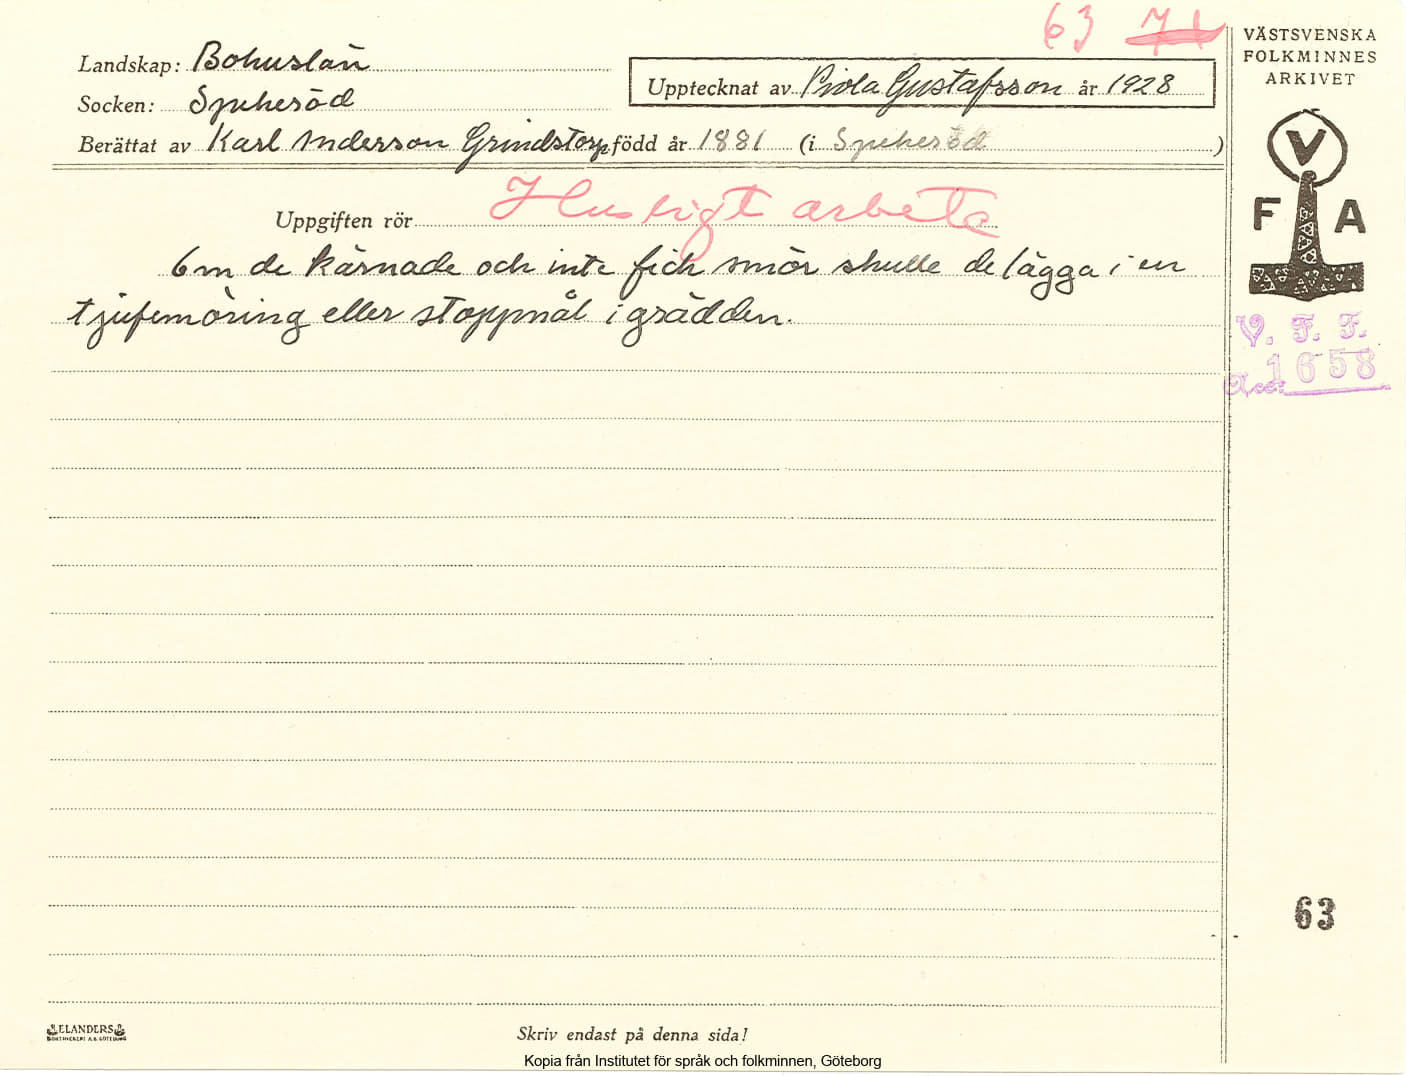 63 71
VÄSTSVENSKA
FOLKMINNES
ARKIVET
Landskap: Bohuslän
Upptecknat av Viola Gustafsson år 1928
Socken: Spekeröd
Berättat av Karl Anderson Grindstorp född år 1881 (i Spekeröd)
V
F A
Uppgiften rör Husligt arbete
Om de kärnade och inte fick smör skulle de lägga i en
tjufemöring eller stoppnål i grädden.
V. F. F.
Acc: 1658
63
ELANDERS
BOKTRYCKERI A.B. GÖTEBORG
Skriv endast på denna sida!
Kopia från Institutet för språk och folkminnen, Göteborg